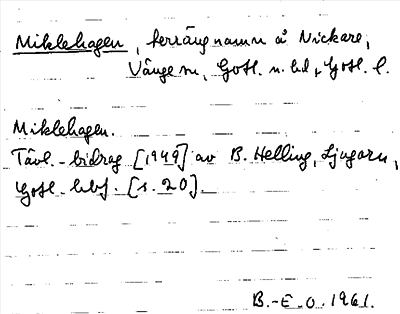 Miklehagen, terrängnamn å Nickare,
Vänge sn, Gotl. n. hd, Gotl. l.
Miklehagen.
Tävl.-bidrag [1949] av B. Helling, Ljugarn,
Gotl. hbf. [s. 20].
B.-E.O. 1961.